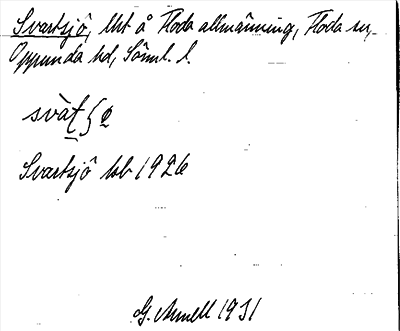 Svartsjö, lht å Floda allmänning, Floda sn,
Oppunda hd, Söml. l.
Svartsjö tsb 1926
G. Arnell 1931